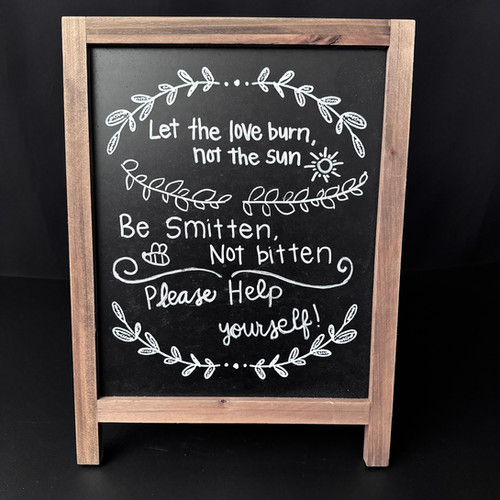 Let the love burn,
not the sun
Be Smitten,
Not bitten
Please Help
yourself!